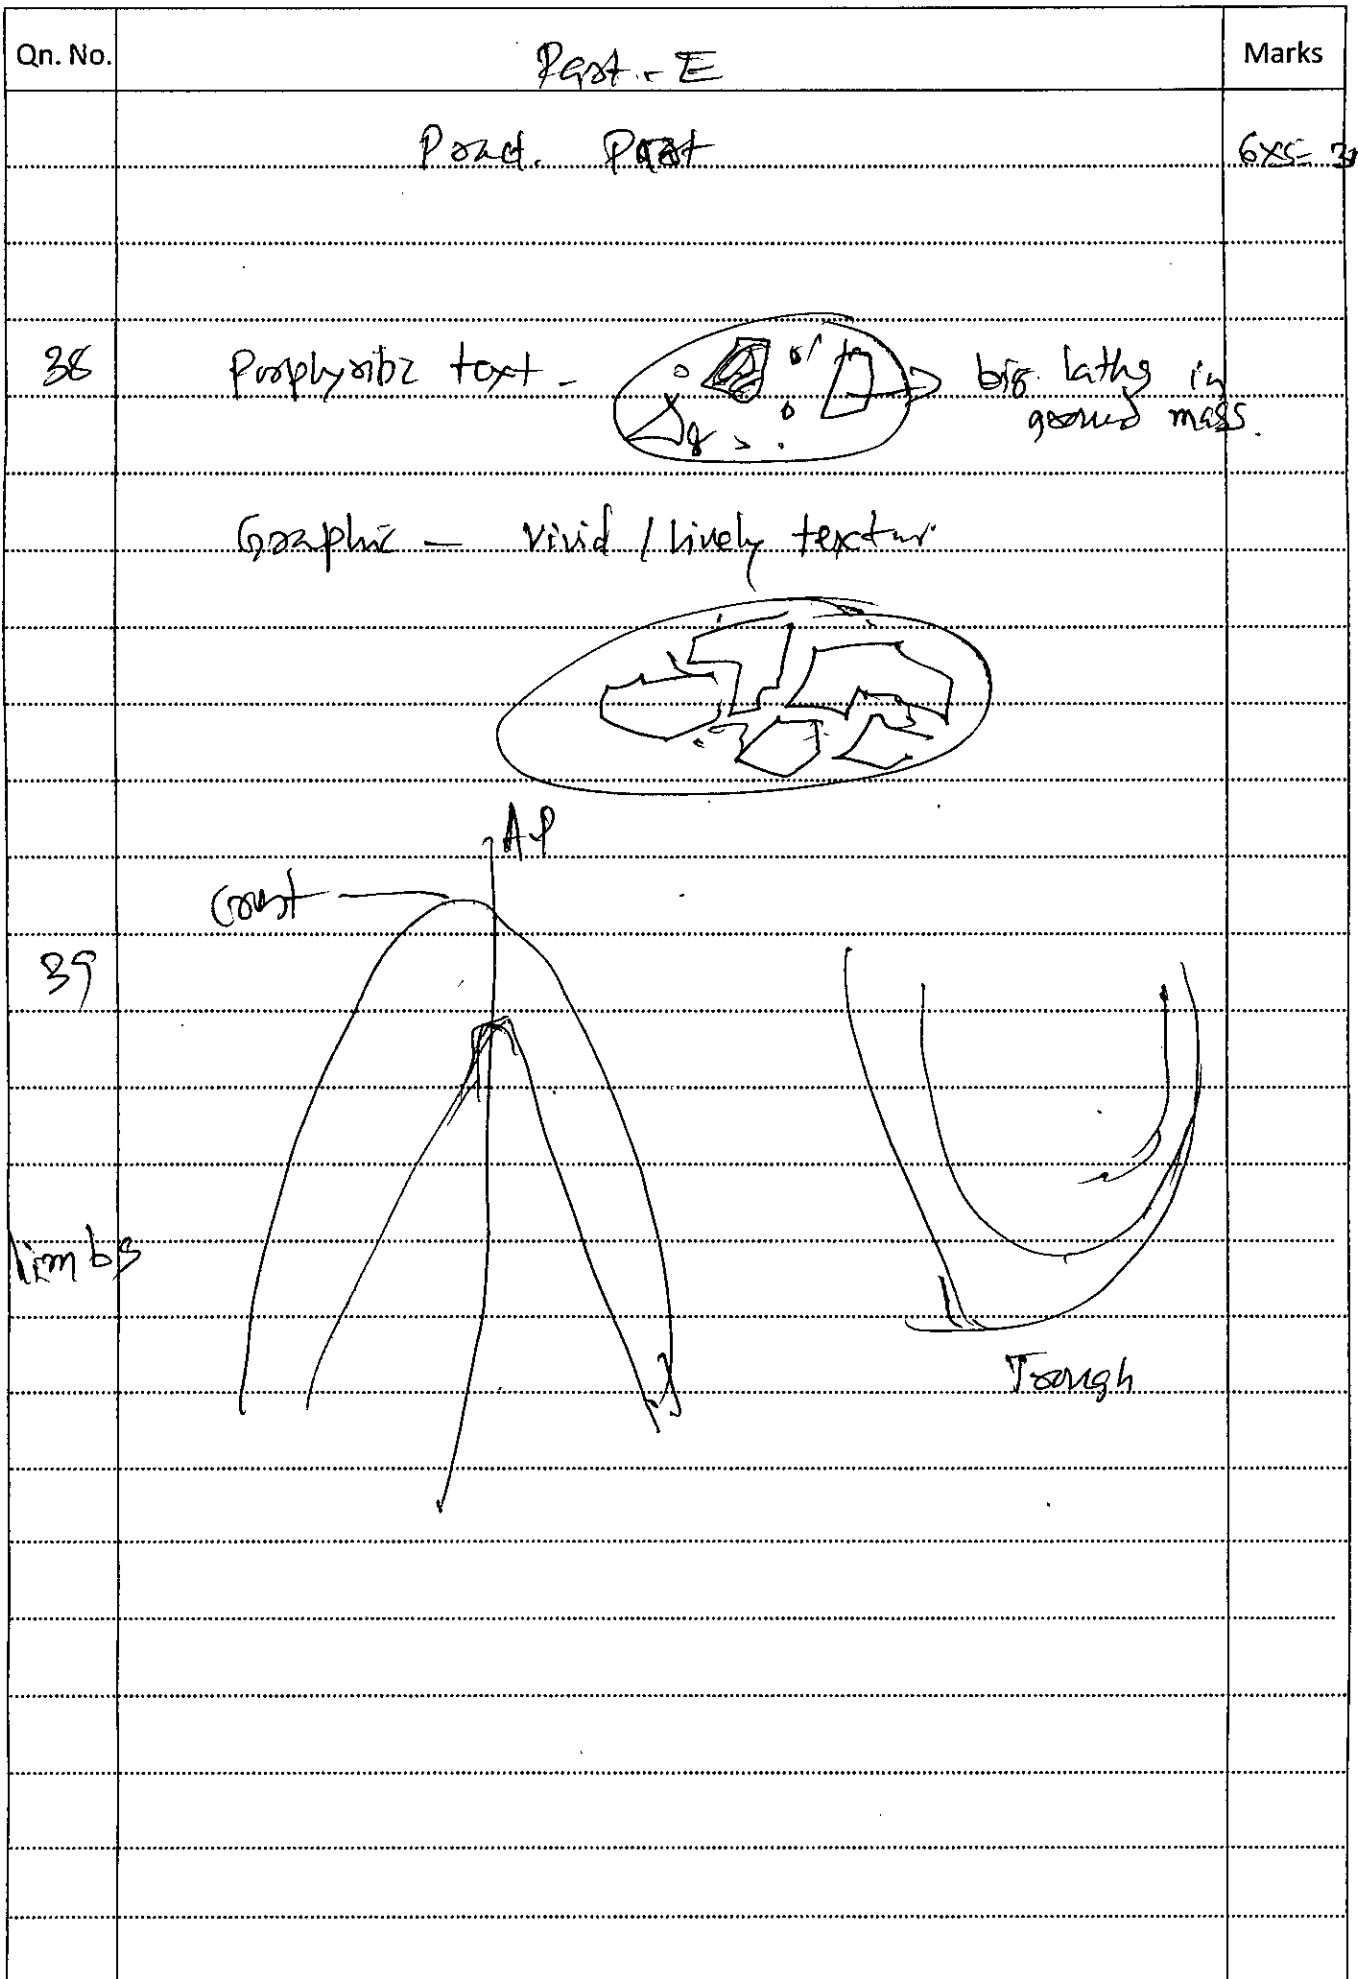 Qn. No.
Part - E
Marks
Pract. Part
6x5=
38
text -
big laths in
ground mass.
Graphic - Vivid / Lively
AP
Crest
39
limbs
Trough